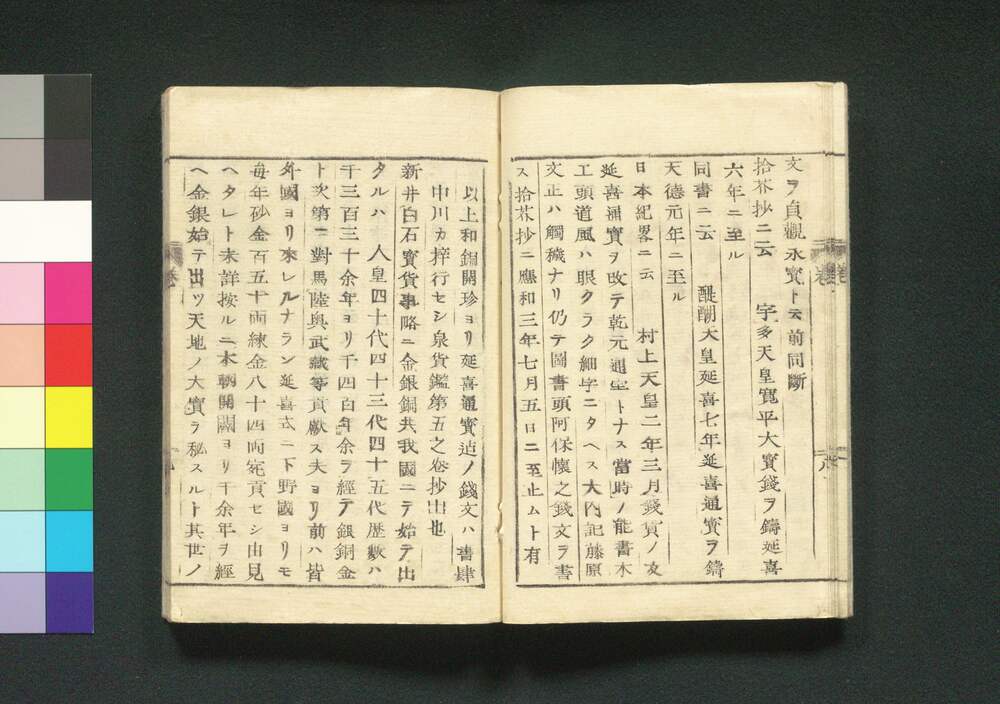 文ヲ貞觀永寶ト云前同斷
拾芥抄ニ云　宇多天皇寬平大寶錢ヲ鑄延喜
六年ニ至ル
同書ニ云　醍醐天皇延喜七年延喜通寳ヲ鑄
天德元年ニ至ル
日本紀畧ニ云　村上天皇二年三月錢貨ノ文
延喜通寳ヲ改テ乾元通寶トナス當時ノ能書木
工頭道風ハ眼クラク細字ニタヘス大内記藤原
文正ハ觸穢ナリ仍テ圖書頭阿保懷之錢文ヲ書
ス拾芥抄ニ應和三年七月五日ニ至止ムト有
以上和銅開珍ヨリ延喜通寳迠ノ錢文ハ書肆
中川カ梓行セシ泉貨鑑第五之卷抄出也
新井白石寳貨事略ニ金銀銅共我國ニテ始テ出
タルハ　人皇四十代四十三代四十五代歴數ハ
千三百三十余年ヨリ千四百年余ヲ經テ銀銅金
ト次第ニ對馬陸奥武藏等貢獻ス夫ヨリ前ハ皆
外國ヨリ來レルナラン延喜式ニ下野國ヨリモ
毎年砂金百五十両練金八十四両宛貢セシ由見
ヘタレト未詳按ルニ本朝開闢ヨリ千余年ヲ經
ヘ金銀始テ出ツ天地ノ大寳ヲ秘スルト其世ノ